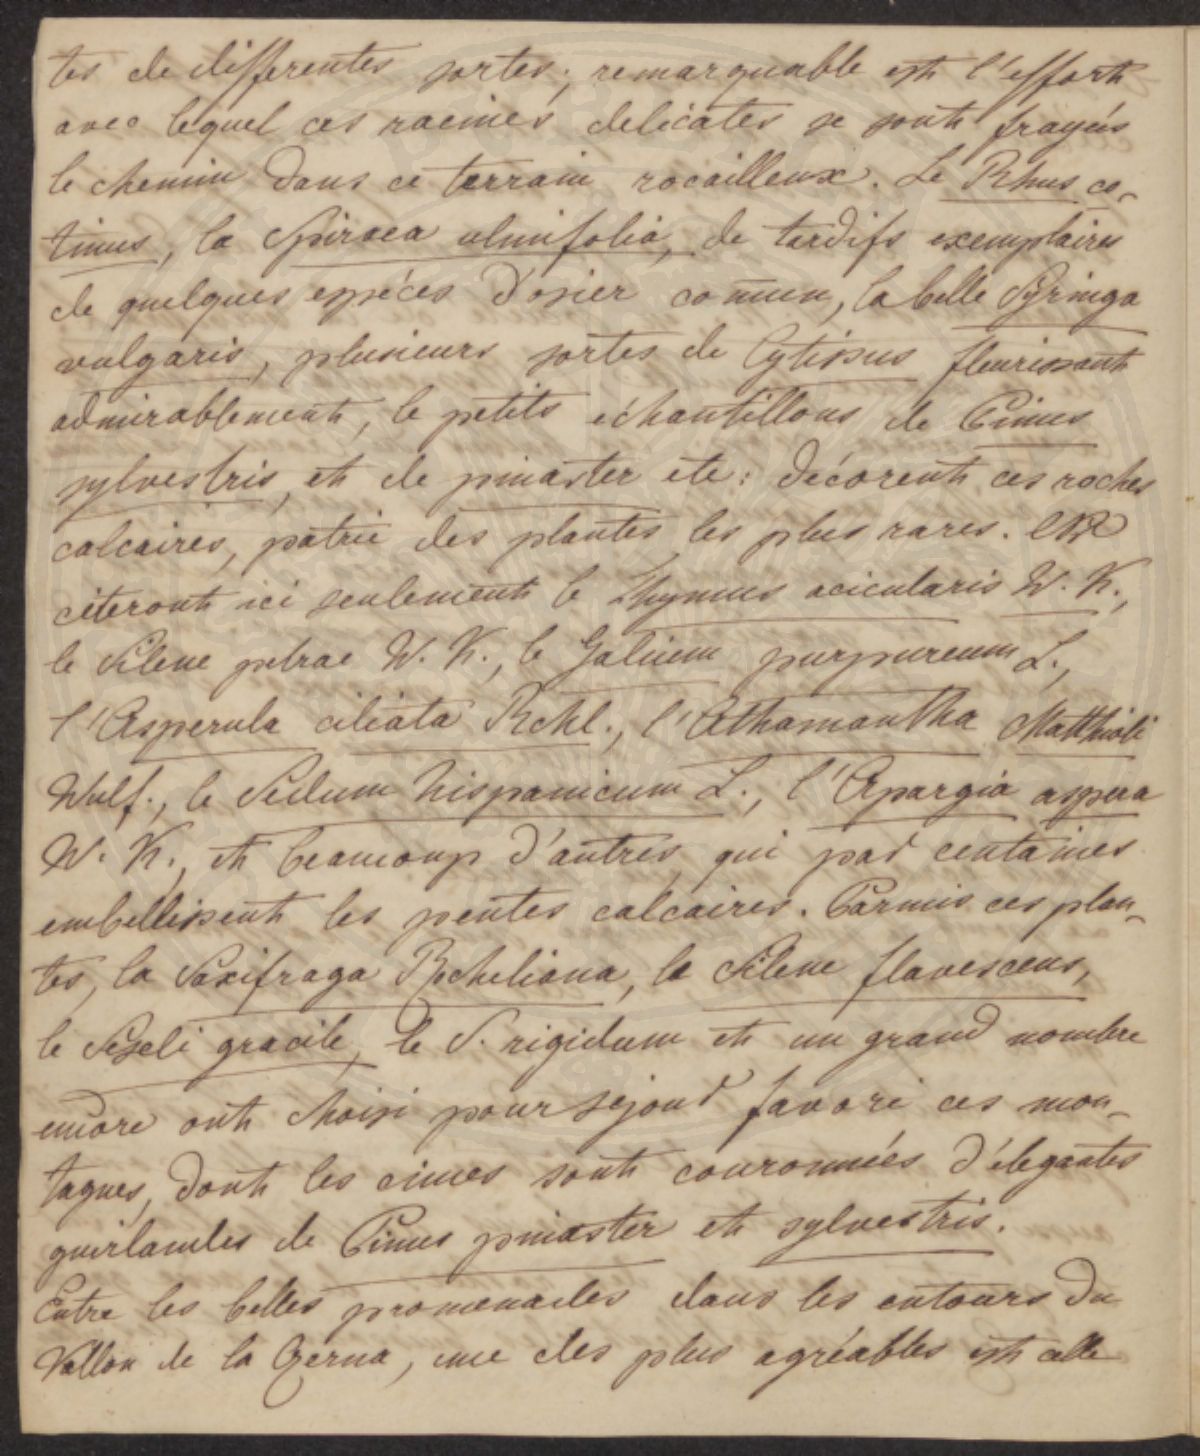 tes de differentes sortes; remarquable est l'effort
avec lequel ces racines delicates se sont frayées
le chemin dans ce terrain rocailleux. Le Rhus co-
tinus, la Spiraea ulmifolia, de tardifs exemplaires
de quelques espéces d'osier comun, la belle Syringa
vulgaris, plusieurs sortes de Cytissus fleurissant
admirablement, le petits échantillons de Pinus
sylvestris, et de pinaster etc: décorent ces roches
calcaires, patrie des plantes les plus rares.
citeront ici seulement le Thymus acicularis W. K.,
le Silene petrae W. K., le Galium purpureum L.,
l'Asperula ciliata Rchl., l'Athamantha Matthioli
Wulf., le Sedum hispanicum L., l'Apargia aspera
W. K., et beaucoup d'autres, qui par centaines
embellissent les pentes calcaires. Parmis ces plan-
tes, la Saxifraga Rocheliana, le Silene flavescens,
le Seseli gracile, le S. rigidum et un grand nombre
encore ont choisi pour sejour favori ces mon-
tagnes, dont les cimes sont couronnées d'élegantes
guirlandes de Pinus pinaster et sylvestris.
Entre les belles promenades dans les entours du
Vallon de la Czerna, une des plus agréables est celle